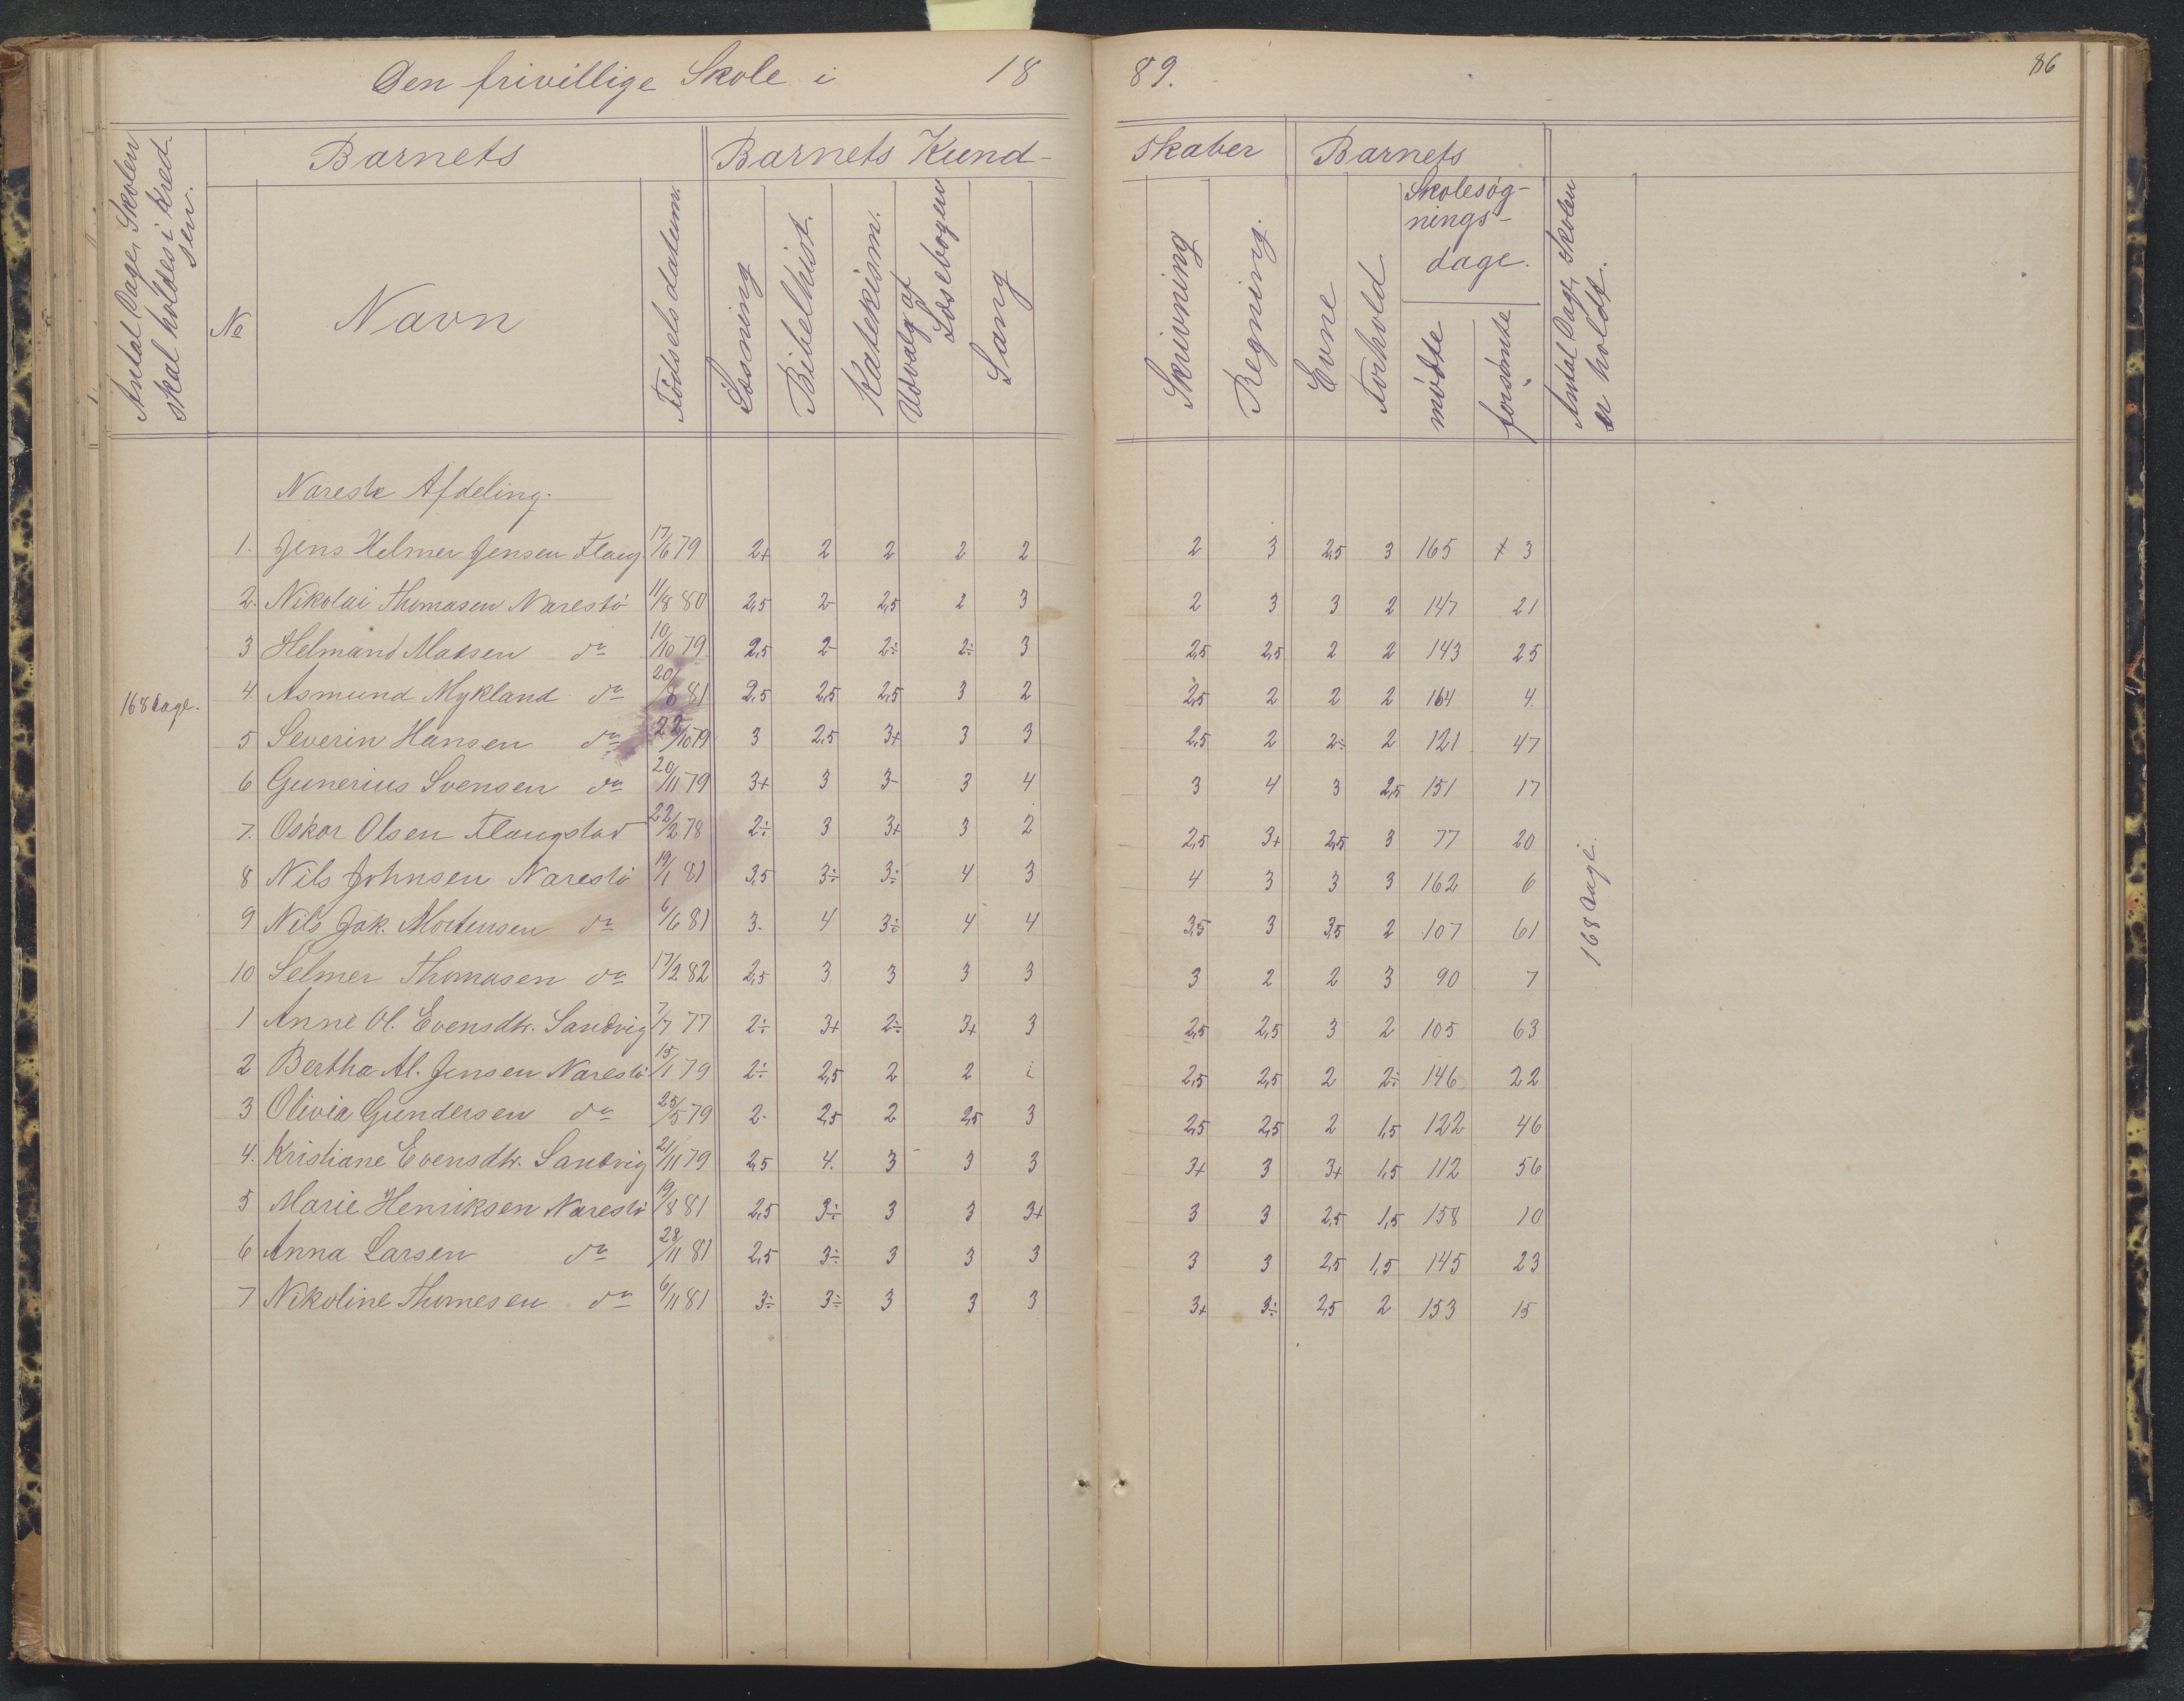 Den frivillige Skole i 1889.
86
Antal Dage, Skolen skal holdes i Kredsen.
Barnets
Barnets Kundskaber
Barnets
No
Navn
Fødselsdatum.
Læsning
Bibelhist.
Katekism.
Udvalg af Læsebogen
Sang
Skrivning
Regning.
Evne
Forhold
Skolesøgningsdage.
mødte
forsømte
Antal Dage, Skolen er holdt.
Narestø Afdeling.
1. Jens Helmer Jensen Flaug 17/6 79 2+ 2 2 2 2 2 3 2,5 3 165 + 3
2. Nikolai Thomasen Narestö 11/8 80 2,5 2- 2,5 2 3 2 3 3 2 147 21
3 Helmand Madsen do 10/10 79 2,5 2- 2÷ 2÷ 3 2,5 2,5 2 2 143 25
168 Dage.
4 Asmund Mykland do 20/8 81 2,5 2,5 2,5 3 2 2,5 2 2 2 164 4
5 Severin Hansen do 22/10 79 3 2,5 3+ 3 3 2,5 2 2÷ 2 121 47
6 Gunerius Svensen do 20/11 79 3+ 3 3- 3 4 3 4 3 2,5 151 17
7. Oskar Olsen Flaugstad 22/2 78 2÷ 3 3+ 3 2 2,5 3+ 2,5 3 77 20
8 Nils Johnsen Narestö 19/1 81 3,5 3÷ 3÷ 4 3 4 3 3 3 162 6
9 Nils Jak. Mortensen do 6/6 81 3- 4 3÷ 4 4 3,5 3 3,5 2 107 61
168 Dage.
10 Selmer Thomasen do 17/2 82 2,5 3 3 3 3 3 2 2 3 90 7
1 Anne Ol. Evensdtr. Sandvig 7/7 77 2÷ 3+ 2÷ 3+ 3 2,5 2,5 3 2 105 63
2 Bertha Al. Jensen Narestö 15/1 79 2÷ 2,5 2 2 i 2,5 2,5 2 2÷ 146 22
3 Olivia Gundersen do 25/5 79 2- 2,5 2 2,5 3 2,5 2,5 2 1,5 122 46
4. Kristiane Evensdtr. Sandvig 21/11 79 2,5 4. 3 3 3 3+ 3 3+ 1,5 112 56
5 Marie Henriksen Narestö 19/8 81 2,5 3÷ 3 3 3+ 3 3 2,5 1,5 158 10
6 Anna Larsen do 28/11 81 2,5 3÷ 3 3 3 3 3 2,5 1,5 145 23
7 Nikoline Thomesen do 6/11 81 3÷ 3÷ 3 3 3 3+ 3÷ 2,5 2 153 15